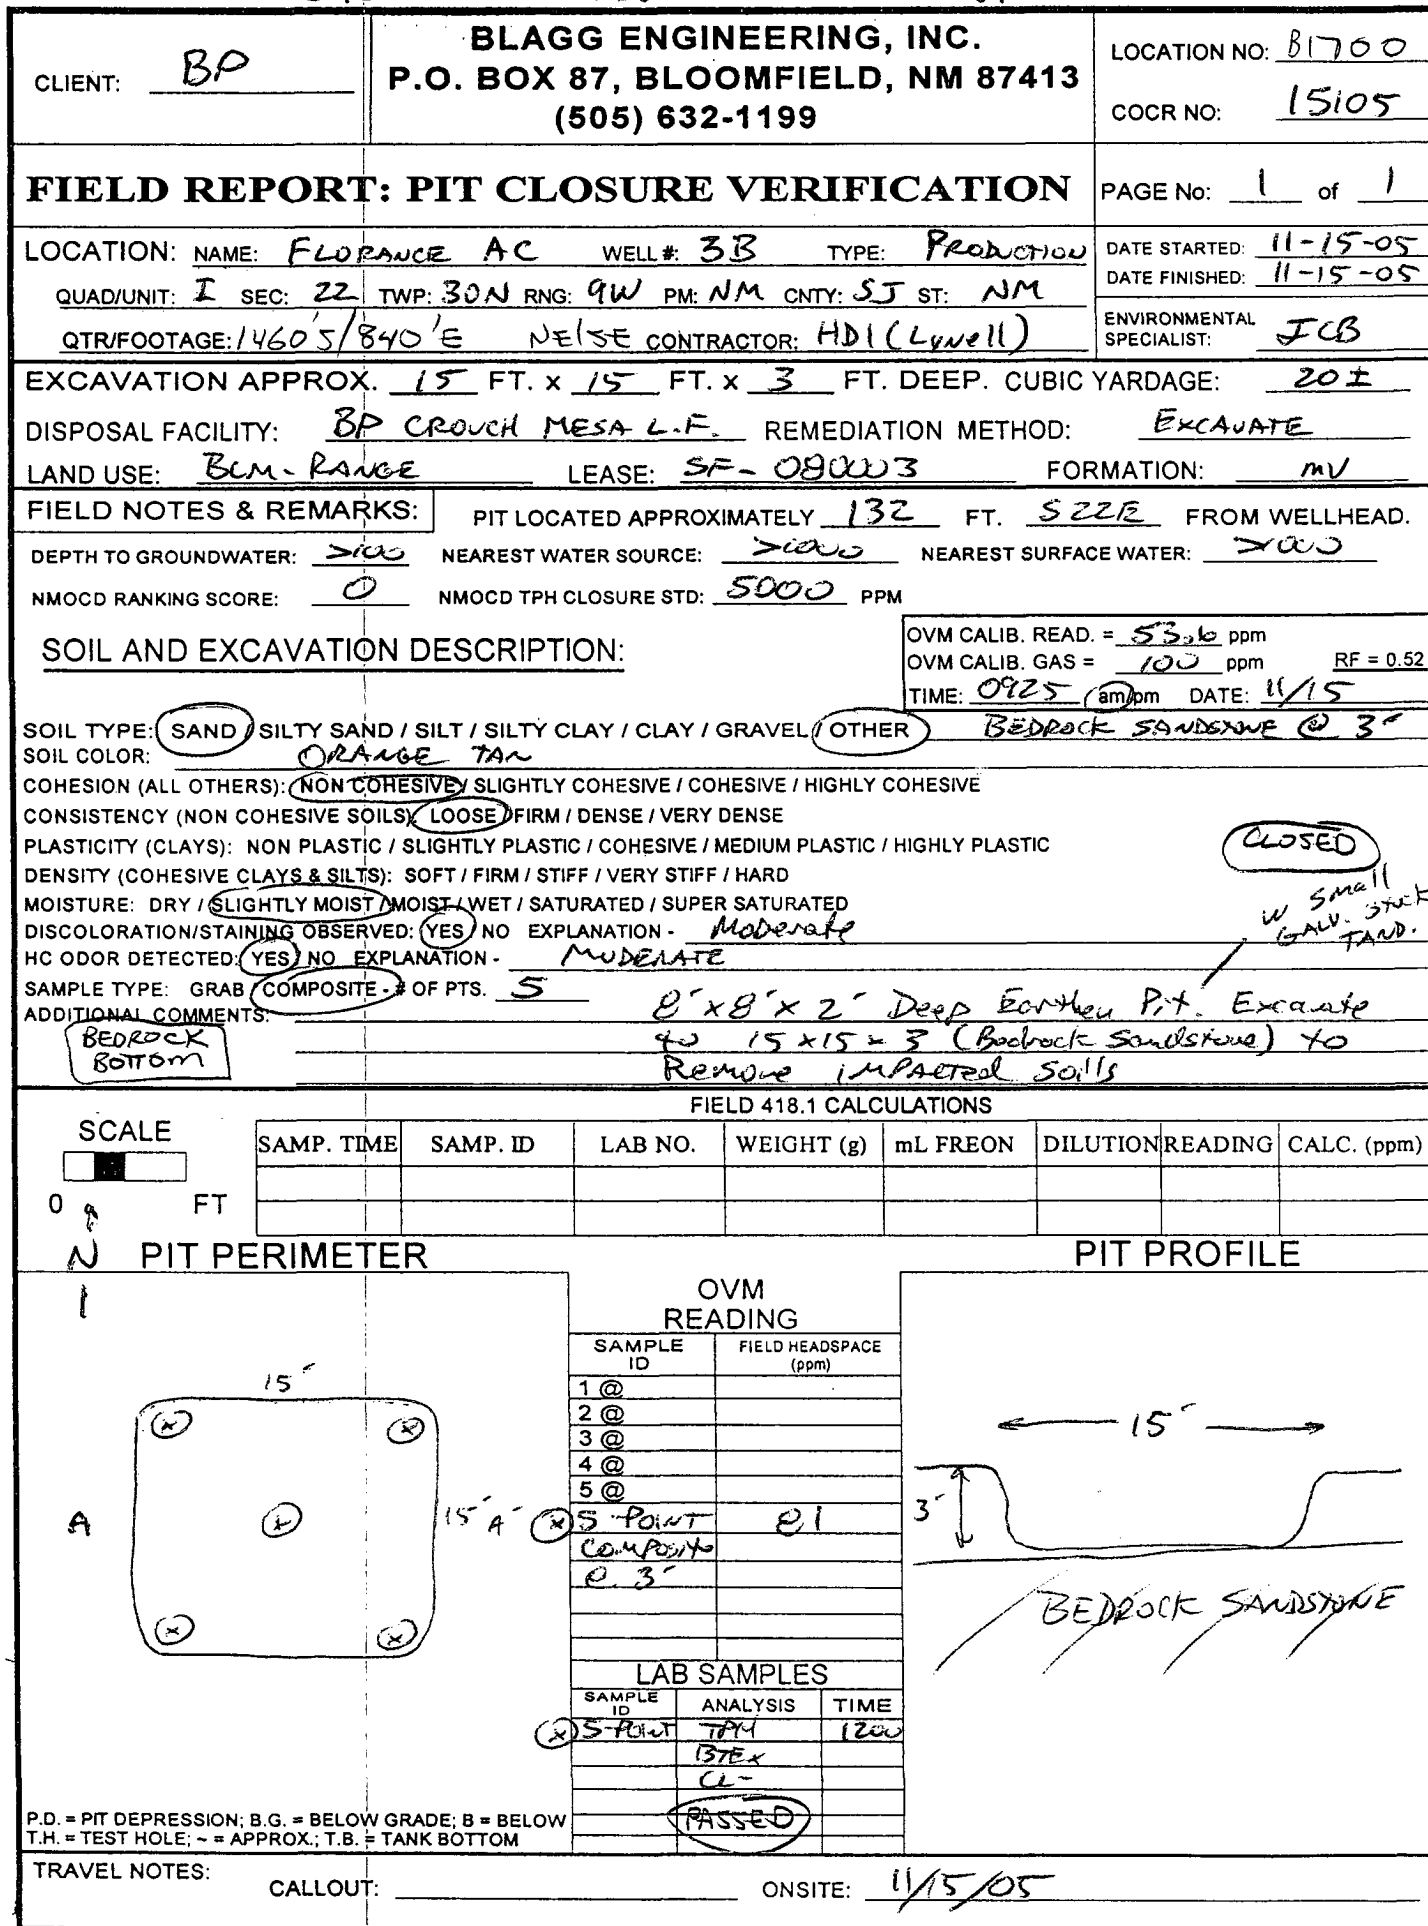 BLAGG ENGINEERING, INC.
P.O. BOX 87, BLOOMFIELD, NM 87413
(505) 632-1199
CLIENT: BP
LOCATION NO: B1700
COCR NO: 15105
FIELD REPORT: PIT CLOSURE VERIFICATION
PAGE No: 1 of 1
LOCATION: NAME: FLORANCE AC WELL #: 3B TYPE: PRODUCTION
QUAD/UNIT: I SEC: 22 TWP: 30N RNG: 9W PM: NM CNTY: SJ ST: NM
QTR/FOOTAGE: 1460'S/840'E NE/SE CONTRACTOR: HDI (Lynell)
DATE STARTED: 11-15-05
DATE FINISHED: 11-15-05
ENVIRONMENTAL
SPECIALIST: JCB
EXCAVATION APPROX. 15 FT. x 15 FT. x 3 FT. DEEP. CUBIC YARDAGE: 20±
DISPOSAL FACILITY: BP CROUCH MESA L.F. REMEDIATION METHOD: EXCAVATE
LAND USE: BLM - RANGE LEASE: SF - 080003 FORMATION: MV
FIELD NOTES & REMARKS: PIT LOCATED APPROXIMATELY 132 FT. S22E FROM WELLHEAD.
DEPTH TO GROUNDWATER: >100 NEAREST WATER SOURCE: >1000 NEAREST SURFACE WATER: >1000
NMOCD RANKING SCORE: 0 NMOCD TPH CLOSURE STD: 5000 PPM
SOIL AND EXCAVATION DESCRIPTION:
OVM CALIB. READ. = 53.6 ppm
OVM CALIB. GAS = 100 ppm RF = 0.52
TIME: 0925 am/pm DATE: 11/15
SOIL TYPE: SAND / SILTY SAND / SILT / SILTY CLAY / CLAY / GRAVEL / OTHER BEDROCK SANDSTONE @ 3'
SOIL COLOR: ORANGE TAN
COHESION (ALL OTHERS): NON COHESIVE / SLIGHTLY COHESIVE / COHESIVE / HIGHLY COHESIVE
CONSISTENCY (NON COHESIVE SOILS): LOOSE / FIRM / DENSE / VERY DENSE
PLASTICITY (CLAYS): NON PLASTIC / SLIGHTLY PLASTIC / COHESIVE / MEDIUM PLASTIC / HIGHLY PLASTIC
DENSITY (COHESIVE CLAYS & SILTS): SOFT / FIRM / STIFF / VERY STIFF / HARD
MOISTURE: DRY / SLIGHTLY MOIST / MOIST / WET / SATURATED / SUPER SATURATED
DISCOLORATION/STAINING OBSERVED: YES / NO EXPLANATION - Moderate
HC ODOR DETECTED: YES / NO EXPLANATION - MODERATE
SAMPLE TYPE: GRAB / COMPOSITE - # OF PTS. 5
CLOSED
W Small
GALV. STOCK
TANK.
ADDITIONAL COMMENTS: 8' x 8' x 2' Deep Earthen Pit. Excavate
to 15 x 15 x 3 (Bedrock Sandstone) to
Remove impacted Soils
BEDROCK
BOTTOM
FIELD 418.1 CALCULATIONS
SCALE
0 FT
SAMP. TIME SAMP. ID LAB NO. WEIGHT (g) mL FREON DILUTION READING CALC. (ppm)
N
PIT PERIMETER
PIT PROFILE
15'
A
15' A'
OVM
READING
SAMPLE
ID
FIELD HEADSPACE
(ppm)
1 @
2 @
3 @
4 @
5 @
5 - POINT
COMPOSITE
@ 3'
LAB SAMPLES
SAMPLE
ID ANALYSIS TIME
5-POINT TPH 1200
BTEX
CL-
PASSED
15'
3'
BEDROCK SANDSTONE
P.D. = PIT DEPRESSION; B.G. = BELOW GRADE; B = BELOW
T.H. = TEST HOLE; ~ = APPROX.; T.B. = TANK BOTTOM
TRAVEL NOTES: CALLOUT: ONSITE: 11/15/05